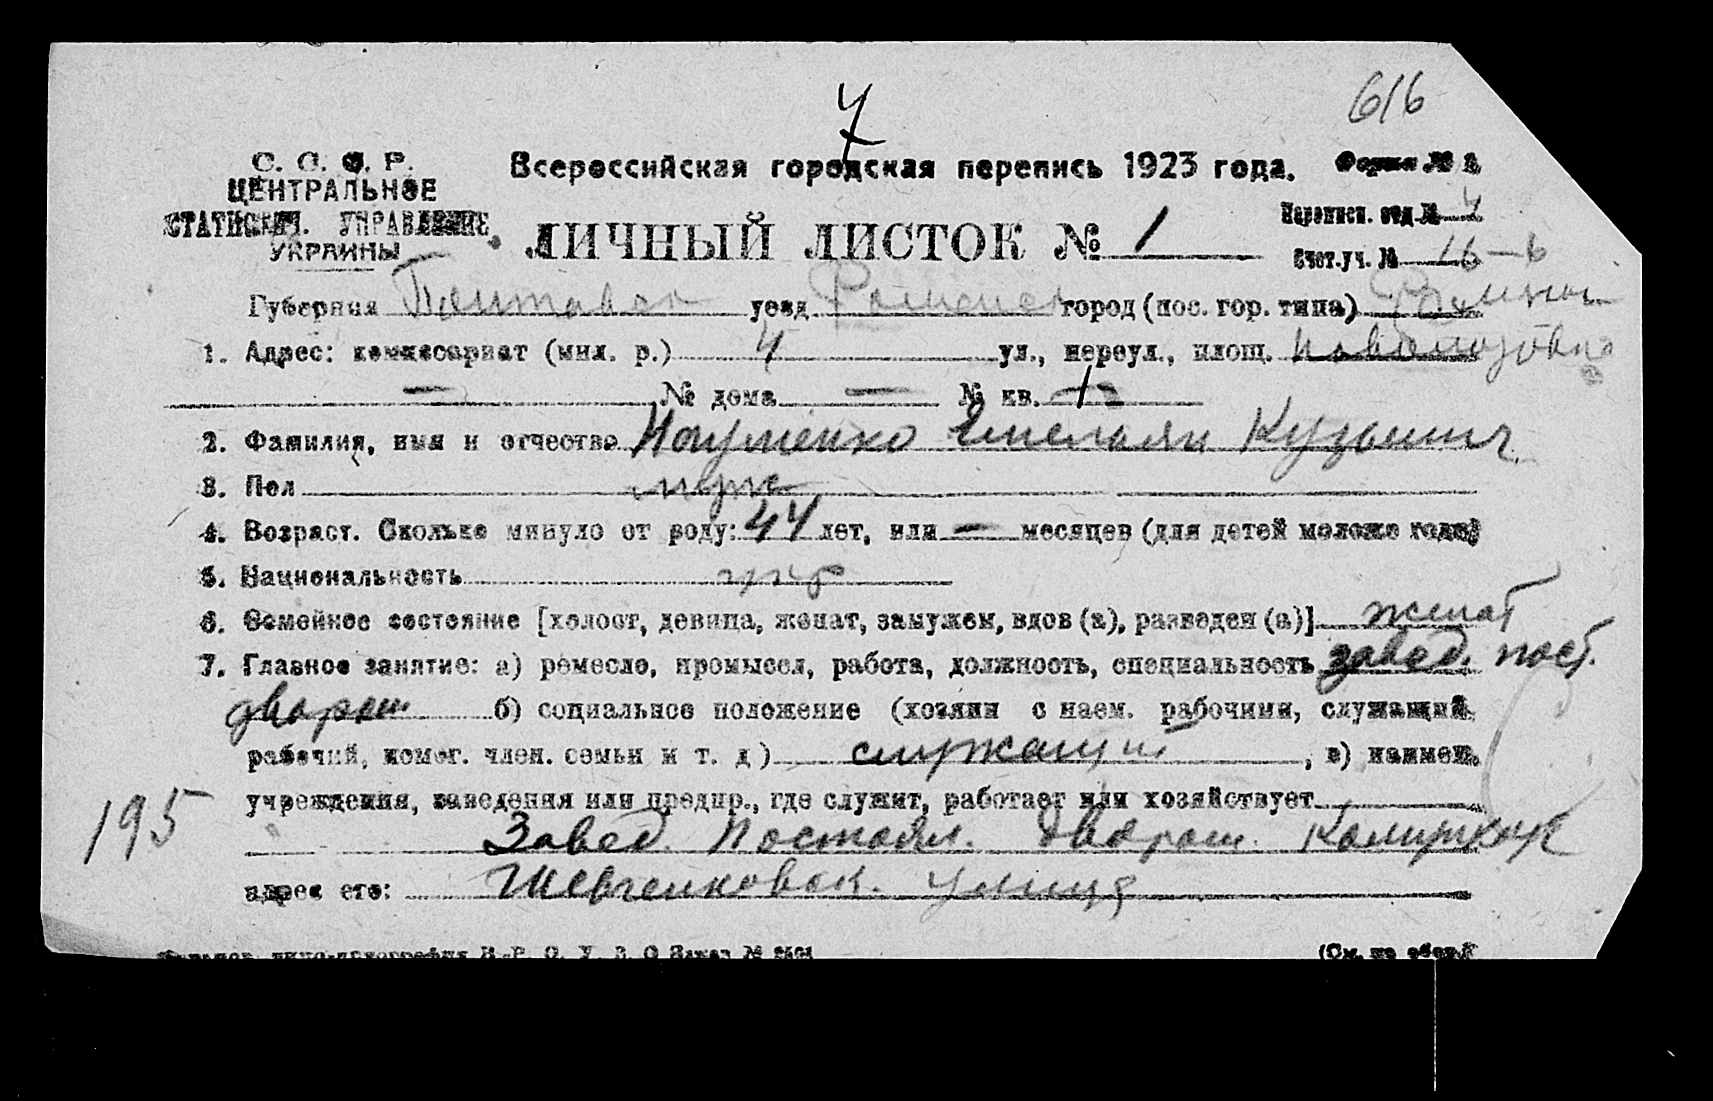 616
7
С. С. С. Р.
ЦЕНТРАЛЬНОЕ
СТАТИСТИЧ. УПРАВЛЕНИЕ
УКРАИНЫ
Всероссийская городская перепись 1923 года.
Форма № 1
ЛИЧНЫЙ ЛИСТОК № 1
Переписн. отд. № 4
Счет. уч. № 16-б
Губерния Полтавск уезд Роменск город (пос. гор. типа) Ромны
1. Адрес: комиссариат (мил. р.) 4 ул., переул., площ.
— № дома — № кв.
2. Фамилия, имя и отчество Науменко Емельян Кузьмич.
3. Пол муж
4. Возраст. Сколько минуло от роду: 44 лет, или — месяцев (для детей моложе года)
5. Национальность укр
6. Семейное состояние [холост, девица, женат, замужем, вдов (а), разведен (а)] женат
7. Главное занятие: а) ремесло, промысел, работа, должность, специальность завед. пост.
двором б) социальное положение (хозяин с наем. рабочими, служащий,
рабочий, помог. член. семьи и т. д) служащий, в) наимен.
учреждения, заведения или предпр., где служит, работает или хозяйствует
195
Завед. Постоял. двором
адрес его: Шевченковск. улица
(См. на обор.)